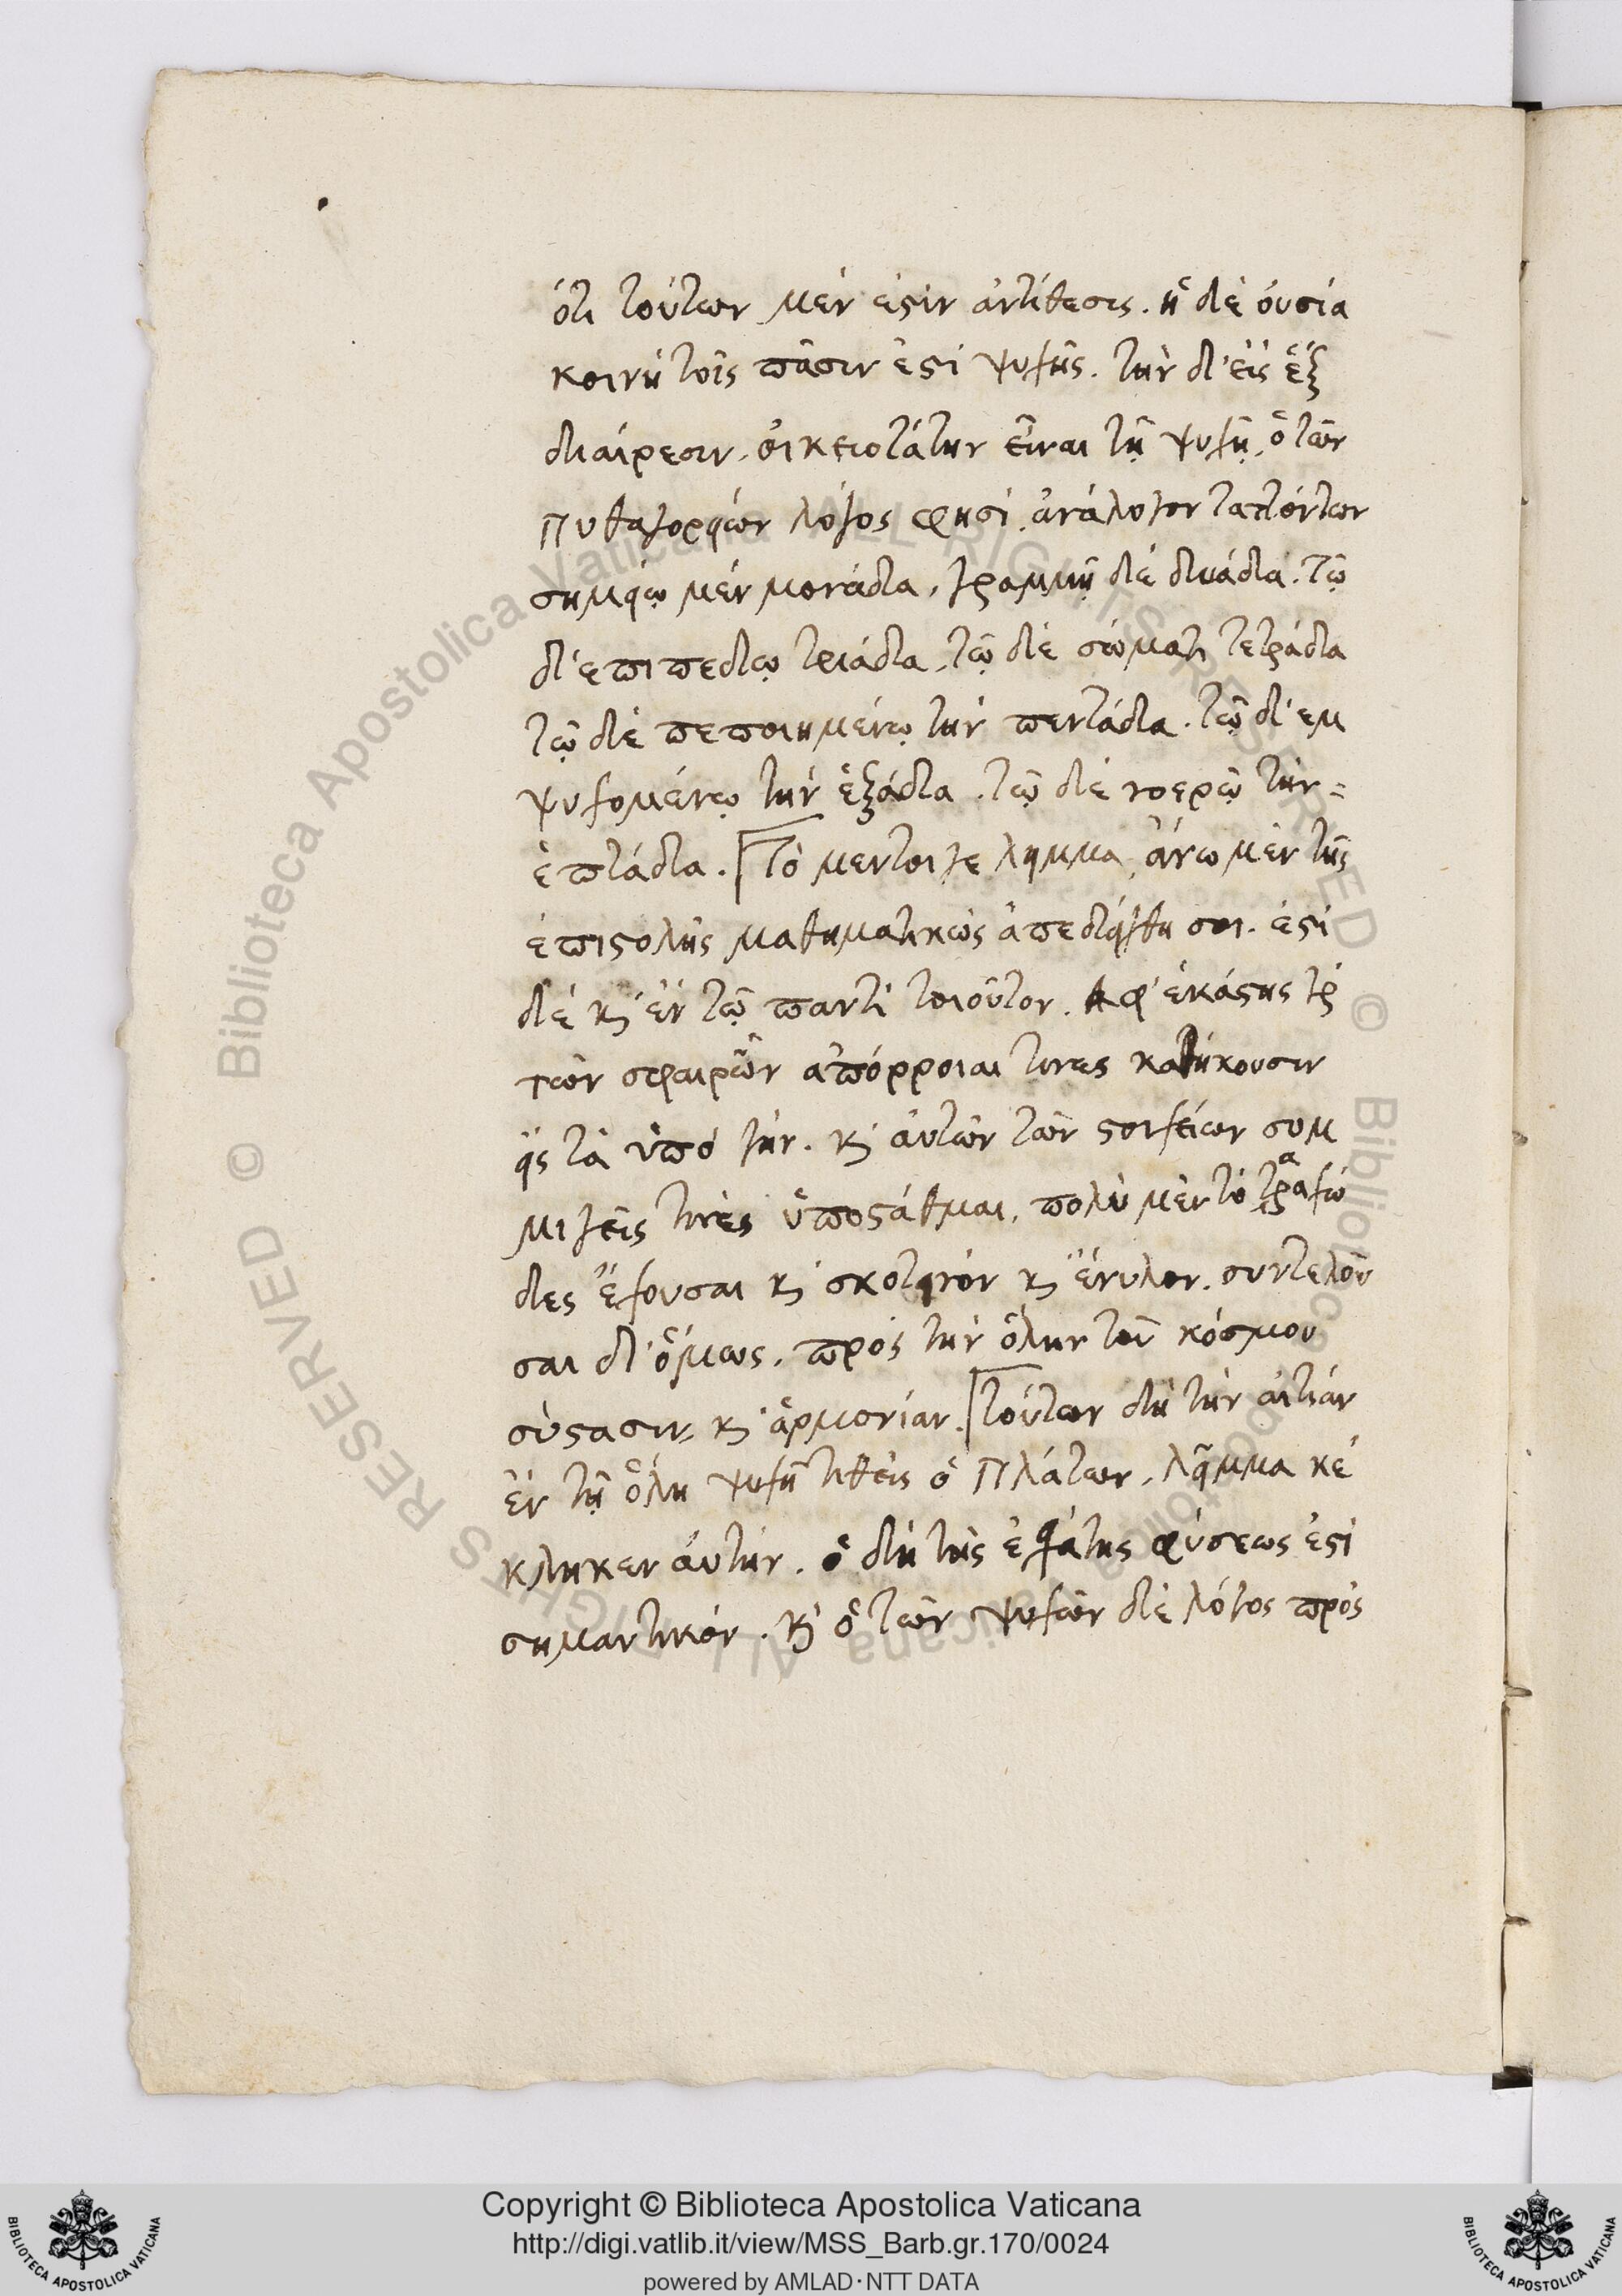 ὅτι τούτων μέν ἐστιν ἀντίθεσις. ἡ δὲ οὐσία
κοινὴ τοῖς πᾶσιν ἐστὶ ψυχῆς. τὴν δ' εἰς ἓξ
διαίρεσιν, οἰκειοτάτην εἶναι τῇ ψυχῇ, ὁ τῶν
Πυθαγορείων λόγος φησί. ἀνάλογον ταττόντων
σημείῳ μὲν μονάδα, γραμμῇ δὲ δυάδα. τῷ
δ' ἐπιπέδῳ τριάδα, τῷ δὲ σώματι τετράδα
τῷ δὲ πεποιημένῳ τὴν πεντάδα. τῷ δ' ἐμ
ψυχομένῳ τὴν ἑξάδα. τῷ δὲ νοερῷ τὴν
ἑπτάδα. Τὸ μέντοιγε λῆμμα, ἄνω μὲν τῆς
ἐπιστολῆς μαθηματικῶς ἀπεδείχθη σοι. ἐστὶ
δὲ καὶ ἐν τῷ παντὶ τοιοῦτον. ἀφ' ἑκάστης γὰρ
τῶν σφαιρῶν ἀπόρροιαι τινες καθήκουσιν
εἰς τὰ ὑπὸ γῆν. καὶ αὐτῶν τῶν στοιχείων συμ
μιγεῖς τινὲς ὑποστάθμαι, πολὺ μὲν τὸ τραχῶ
δες ἔχουσαι καὶ σκοτεινὸν καὶ ἔνυλον. συντελοῦ
σαι δ' ὅμως, πρὸς τὴν ὅλην τοῦ κόσμου
σύστασιν, καὶ ἁρμονίαν. Τούτων δὴ τὴν αἰτίαν
ἐν τῇ ὅλῃ ψυχῇ τιθεὶς ὁ Πλάτων, λεῖμμα κέ
κληκεν αὐτήν. ὃ δὴ τῆς ἐσχάτης φύσεως ἐστὶ
σημαντικόν. καὶ ὁ τῶν ψυχῶν δὲ λόγος πρὸς
Copyright © Biblioteca Apostolica Vaticana
http://digi.vatlib.it/view/MSS_Barb.gr.170/0024
powered by AMLAD·NTT DATA
BIBLIOTECA APOSTOLICA VATICANA
BIBLIOTECA APOSTOLICA VATICANA
© Biblioteca Apostolica Vaticana ALL RIGHTS RESERVED © Biblioteca Apostolica Vaticana ALL RIGHTS RESERVED